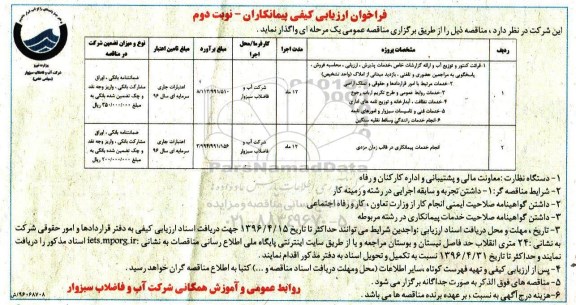 فراخوان ارزیابی کیفی پیمانکاران - نوبت دوم
این شرکت در نظر دارد ، مناقصه ذیل را از طریق برگزاری مناقصه عمومی یک مرحله ای واگذار نماید .
ردیف
مشخصات پروژه
مدت اجرا
کارفرما/محل اجرا
مبلغ برآورد
مبلغ تامین اعتبار
نوع و میزان تضمین شرکت در مناقصه
۱
۱- قرائت کنتور و توزیع آب و ارائه گزارشات خاص ، خدمات پذیرش ، ارزیابی ، محاسبه فروش ،
پاسخگویی به مراجعین حضوری و تلفنی ، بازدید میدانی از املاک (واحد تشخیص)
۲- خدمات مرتبط با امور قراردادها و حقوقی و املاک اراضی
۳- خدمات روابط عمومی و طرح تکریم ارباب رجوع
۴- خدمات نظافت ، آبدارخانه و توزیع نامه های اداری
۵- خدمات فنی و تاسیسات سبزوار و امورهای تابعه
۶- انجام خدمات رانندگی وسائط نقلیه سنگین
۱۲ ماه
شرکت آب و فاضلاب سبزوار
اعتبارات جاری سرمایه ای سال ۹۶
ضمانتنامه بانکی ، اوراق مشارکت بانکی ، واریز وجه نقد و چک تضمین شده بانکی به مبلغ
۲
انجام خدمات پیمانکاری در قالب زمان مزدی
۱۲ ماه
شرکت آب و فاضلاب سبزوار
۲/۹۹۴/۹۹۱/۱۵۶
اعتبارات جاری سرمایه ای سال ۹۶
ضمانتنامه بانکی ، اوراق مشارکت بانکی ، واریز وجه نقد و چک تضمین شده بانکی به مبلغ ۲۰۰/۰۰۰/۰۰۰ ریال
۱- دستگاه نظارت : معاونت مالی و پشتیبانی و اداره کارکنان و رفاه
۲- شرایط مناقصه گر : ۱- داشتن تجربه و سابقه اجرایی در رشته و زمینه کار
۲- داشتن گواهینامه صلاحیت ایمنی انجام کار از وزارت تعاون ، کار و رفاه اجتماعی
۳- داشتن گواهینامه صلاحیت خدمات پیمانکاری در رشته مربوطه
۳- تاریخ ، مهلت و محل دریافت اسناد ارزیابی : واجدین شرایط می توانند حداکثر تا تاریخ ۱۳۹۶/۴/۱۵ جهت دریافت اسناد ارزیابی کیفی به دفتر قراردادها و امور حقوقی شرکت
به نشانی : ۲۴ متری انقلاب حد فاصل نیستان و بوستان مراجعه و یا از طریق سایت اینترنتی پایگاه ملی اطلاع رسانی مناقصات به نشانی : iets.mporg.ir اسناد مذکور را دریافت
نمایند و حداکثر تا تاریخ ۱۳۹۶/۴/۳۱ نسبت به تکمیل و تحویل اسناد به دفتر مذکور اقدام نمایند .
۴- پس از ارزیابی کیفی و تهیه فهرست کوتاه ، سایر اطلاعات (محل و مهلت دریافت اسناد مناقصه و ...) کتبا به اطلاع مناقصه گران خواهد رسید .
۵- مناقصه های فوق الذکر به صورت جداگانه برگزار می شود .
۶- هزینه درج آگهی به نسبت ، بر عهده برنده مناقصه ها می باشد .
روابط عمومی و آموزش همگانی شرکت آب و فاضلاب سبزوار